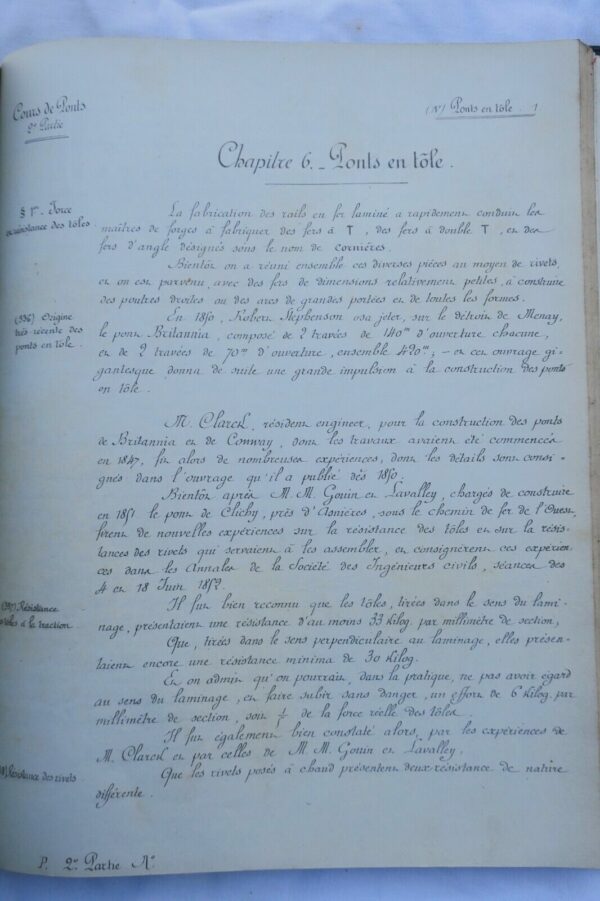 Cours de Ponts
2e Partie
(N) Ponts en tôle. 1
Chapitre 6. - Ponts en tôle.
§ 1er. Force
et résistance des tôles
La fabrication des rails en fer laminé a rapidement conduit les
maîtres de forges à fabriquer des fers à T, des fers à double T, et des
fers d'angle désignés sous le nom de cornières.
Bientôt on a réuni ensemble ces diverses pièces au moyen de rivets,
et on est parvenu, avec des fers de dimensions relativement petites, à construire
des poutres droites ou des arcs de grandes portées et de toutes les formes.
(336) Origine
très récente des
ponts en tôle.
En 1850, Robert Stephenson osa jeter, sur le détroit de Menay,
le pont Britannia, composé de 2 travées de 140m d'ouverture chacune,
et de 2 travées de 70m d'ouverture, ensemble 420m; - et cet ouvrage gi-
gantesque donna de suite une grande impulsion à la construction des ponts
en tôle.
M. Clarck, résident engineer, pour la construction des ponts
de Britannia et de Conway, dont les travaux avaient été commencés
en 1847, fit alors de nombreuses expériences, dont les détails sont consi-
gnés dans l'ouvrage qu'il a publié dès 1850.
Bientôt après M. M. Gouin et Lavalley, chargés de construire
en 1851 le pont de Clichy, près d'Asnières, sous le chemin de fer de l'Ouest,
firent de nouvelles expériences sur la résistance des tôles et sur la résis-
tances des rivets qui servaient à les assembler, et consignèrent ces expérien-
ces dans les Annales de la Société des Ingénieurs civils, séances des
4 et 18 Juin 1852.
(337) Résistance
tôles à la traction.
Il fut bien reconnu que les tôles, tirées dans le sens du lami-
nage, présentaient une résistance d'au moins 33 Kilog. par millimètre de section,
Que, tirées dans le sens perpendiculaire au laminage, elles présen-
taient encore une résistance minima de 30 Kilog.
Et on admit qu'on pourrait, dans la pratique, ne pas avoir égard
au sens du laminage, et faire subir sans danger, un effort de 6 Kilog. par
millimètre de section, soit de la force réelle des tôles.
Il fut également bien constaté alors, par les expériences de
M. Clarck et par celles de M. M. Gouin et Lavalley.
Résistance des rivets
Que les rivets posés à chaud présentent deux résistance de nature
différente.
P. 2e Partie No